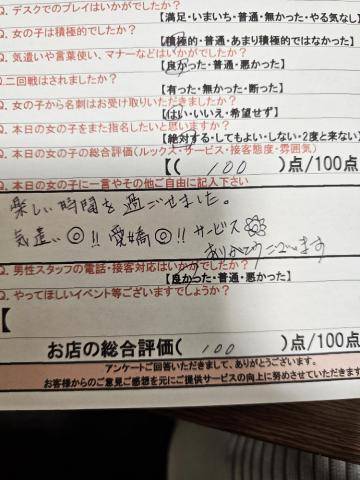 Q. デスクでのプレイはいかがでしたか?
【満足・いまいち・普通・無かった・やる気なし】
Q. 女の子は積極的でしたか?
【積極的・普通・あまり積極的ではなかった】
Q. 気遣いや言葉使い、マナーなどはいかがでしたか?
【良かった・普通・悪かった】
Q.二回戦はされましたか?
【有った・無かった・断った】
Q. 女の子から名刺はお受け取りいただきましたか?
【はい・いいえ・希望せず】
Q. 本日の女の子をまた指名したいと思いますか?
【絶対する・してもよい・しない・2度と来ない】
Q. 本日の女の子の総合評価(ルックス・サービス・接客態度・雰囲気)
【( 100 )点/100点
Q. 本日の女の子に一言やその他ご自由に記入下さい
楽しい時間を過ごせました。
気遣い◎!! 愛嬌◎!! サービス
ありがとうございます
Q. 男性スタッフの電話・接客対応はいかがでしたか?
【良かった・普通・悪かった】
Q. やってほしいイベント等ございますでしょうか?
【
お店の総合評価( 100 )点/100点
アンケートご回答いただきまして、ありがとうございます。
お客様からのご意見ご感想を元にご提供サービスの向上に努めさせていただきます